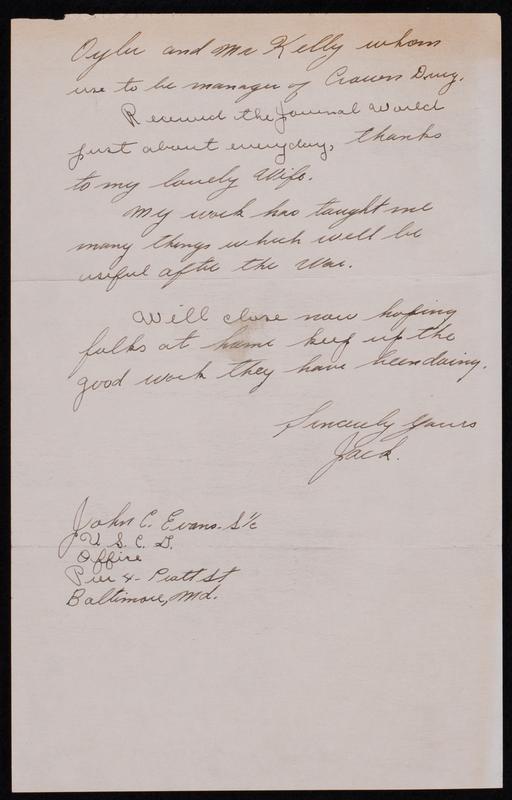 Oyler and Mr Kelly whom
use to be manager of Crown Drug.
Received the Journal World
just about everyday, thanks
to my lovely Wife.
My work has taught me
many things which well be
useful after the War.
Will close now hoping
folks at home keep up the
good work they have been doing.
Sincerely yours
Jack.
John C. Evans. S 1/c
U. S. C. G.
Office
Pier 4 - Pratt St
Baltimore, Md.